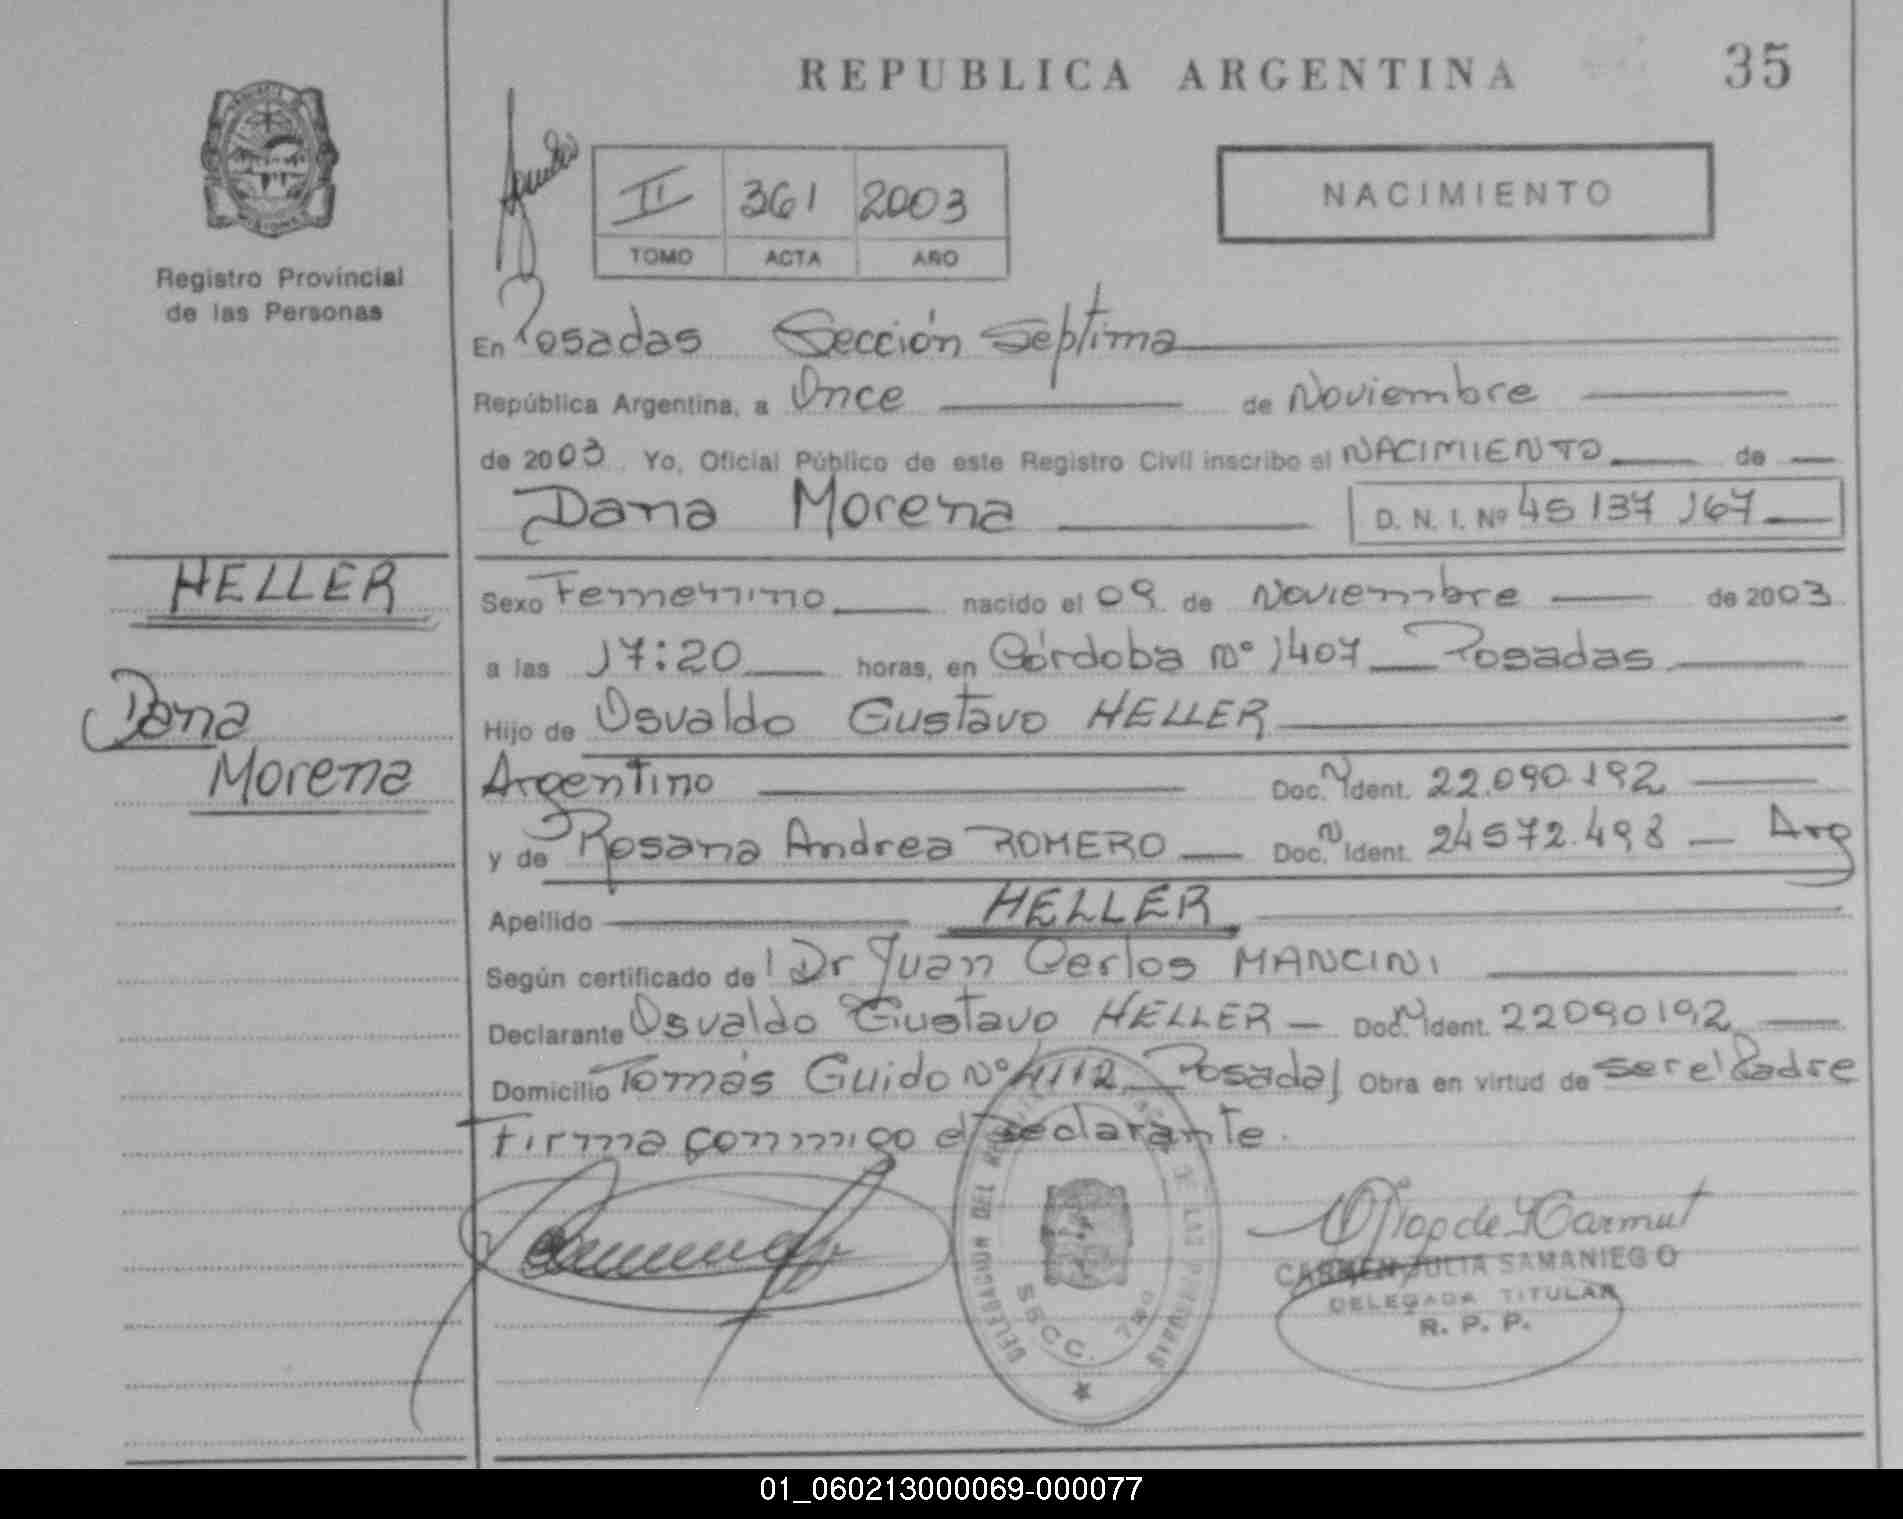 REPUBLICA ARGENTINA 35
II 361 2003
TOMO ACTA AÑO
NACIMIENTO
Registro Provincial
de las Personas
En Posadas Sección Septima
República Argentina, a Once de Noviembre
de 2003 Yo, Oficial Público de este Registro Civil inscribo el NACIMIENTO de
Dana Morena D. N. I. Nº 45 137 167
HELLER
Dana
Morena
Sexo Femenino nacido el 09 de Noviembre de 2003
a las 17:20 horas, en Córdoba Nº 1407 Posadas
Hijo de Osvaldo Gustavo HELLER
Argentino Doc. N Ident. 22.090.192
y de Rosana Andrea ROMERO Doc. N Ident. 24572.498 Arg
Apellido HELLER
Según certificado de Dr Juan Carlos MANCINI
Declarante Osvaldo Gustavo HELLER Doc. N Ident. 22090192
Domicilio Tomás Guido Nº 4112 Posadas Obra en virtud de ser el Padre
Firma conmigo el declarante.
DELEGACION DEL REGISTRO DE LAS PERSONAS
SECC. 7ma
CARMEN JULIA SAMANIEGO
DELEGADA TITULAR
R. P. P.
01_060213000069-000077